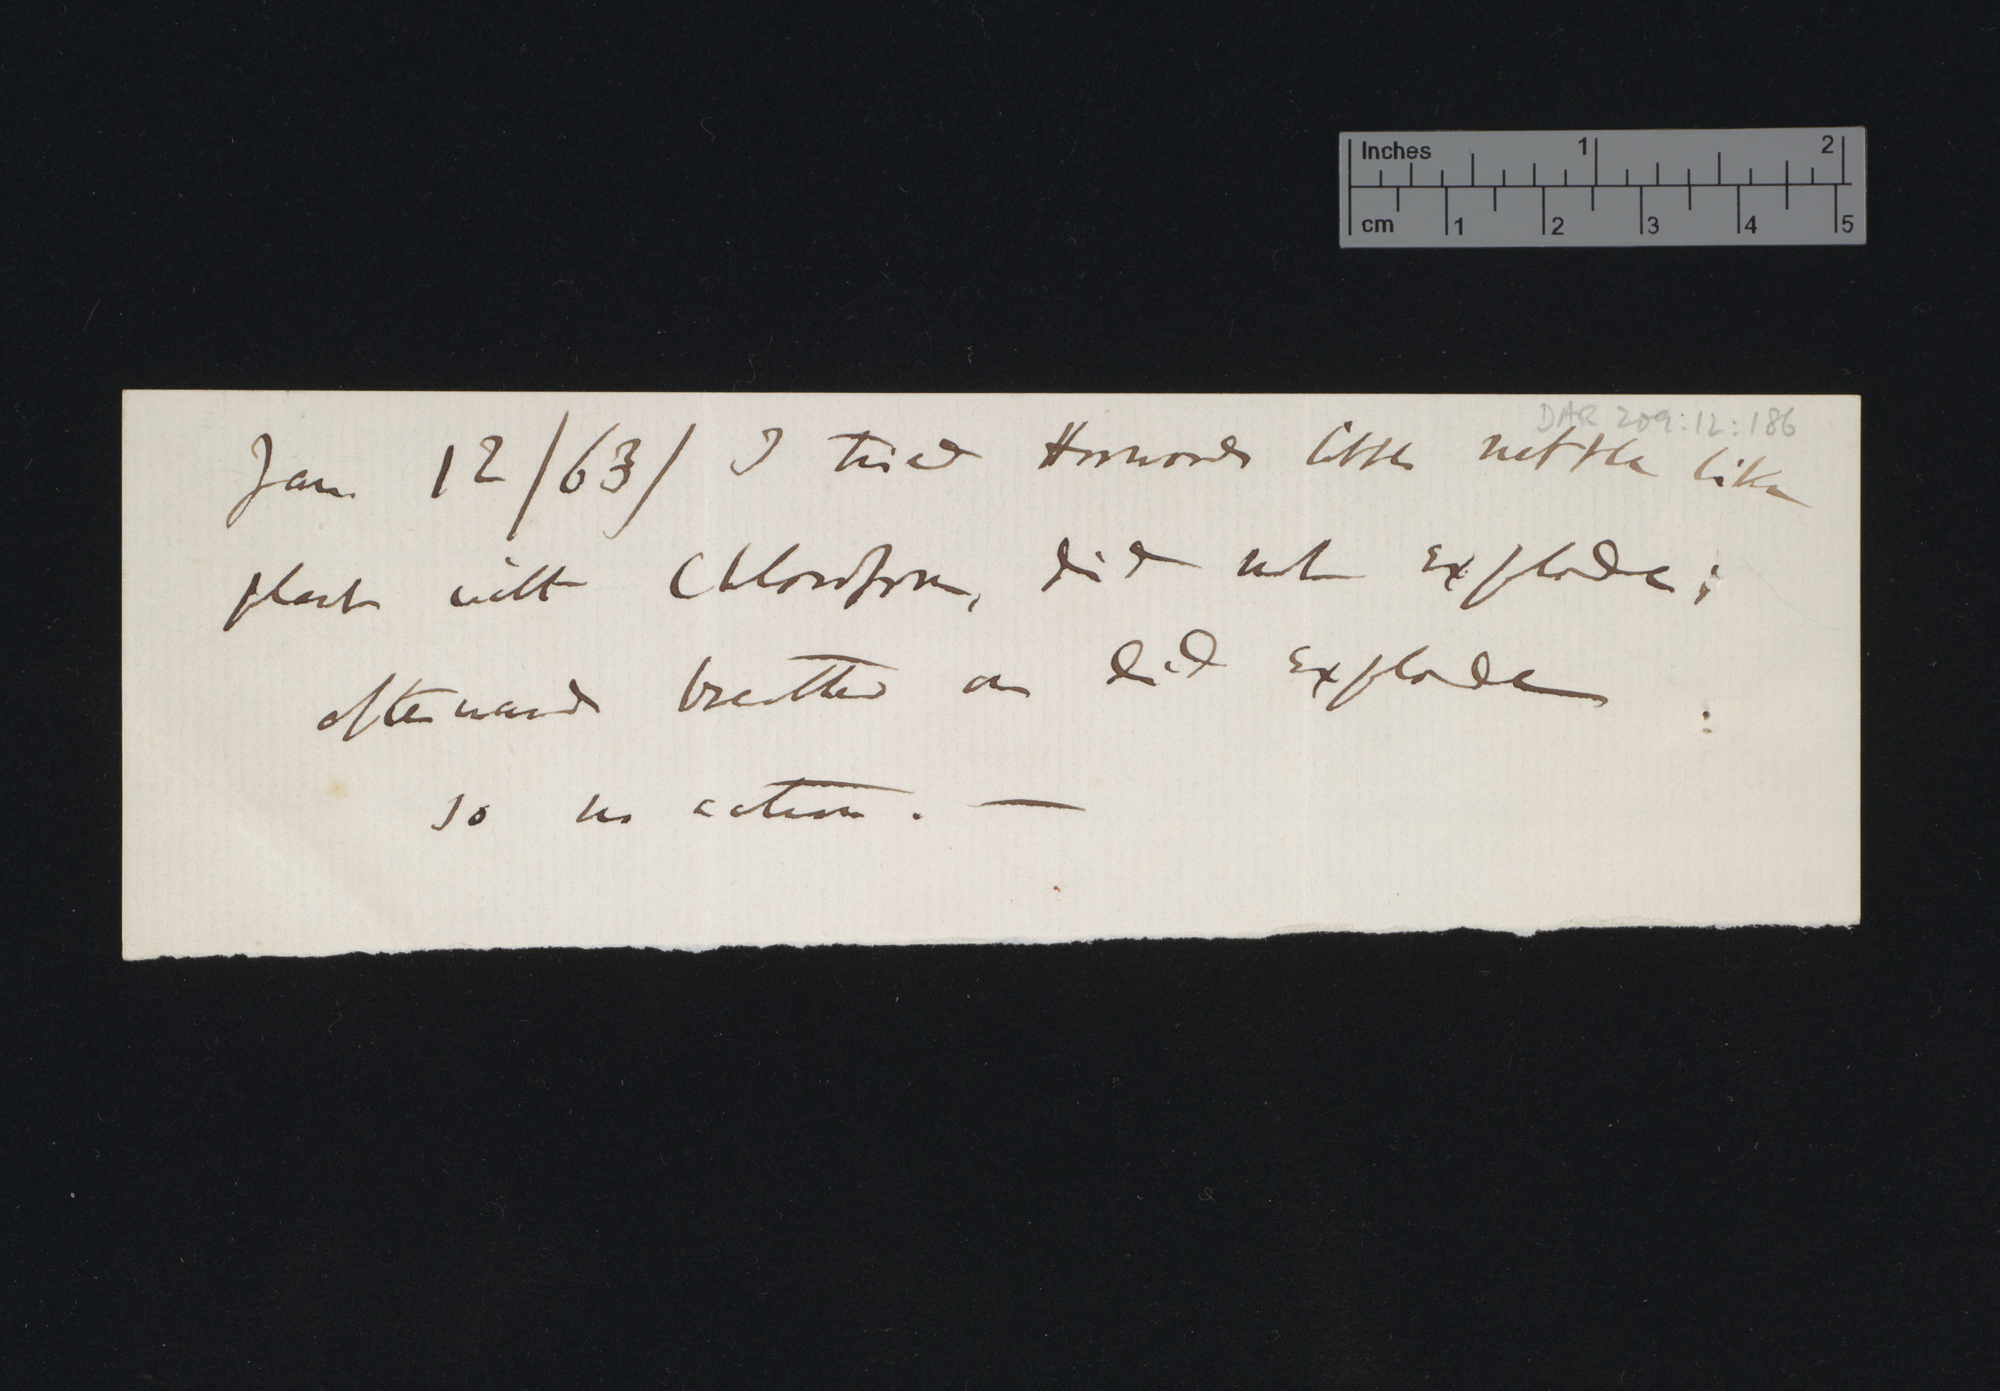 Inches 1 2
cm 1 2 3 4 5
DAR 209:12:186
Jan 12/63/ I tried Horwoods little nettle like
plant with Chloroform, did not explode;
afterwards breathed on did explode
so no action. —